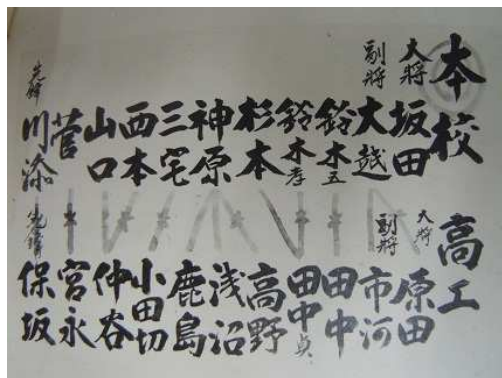 本校
大将 坂田
副将 大越
鈴木五
鈴木孝
杉本
神原
三宅
西本
山口
菅
先鋒 川添
高工
大将 原田
副将 市河
田中
田中貞
高野
浅沼
鹿島
小田切
仲谷
宮永
先鋒 保坂